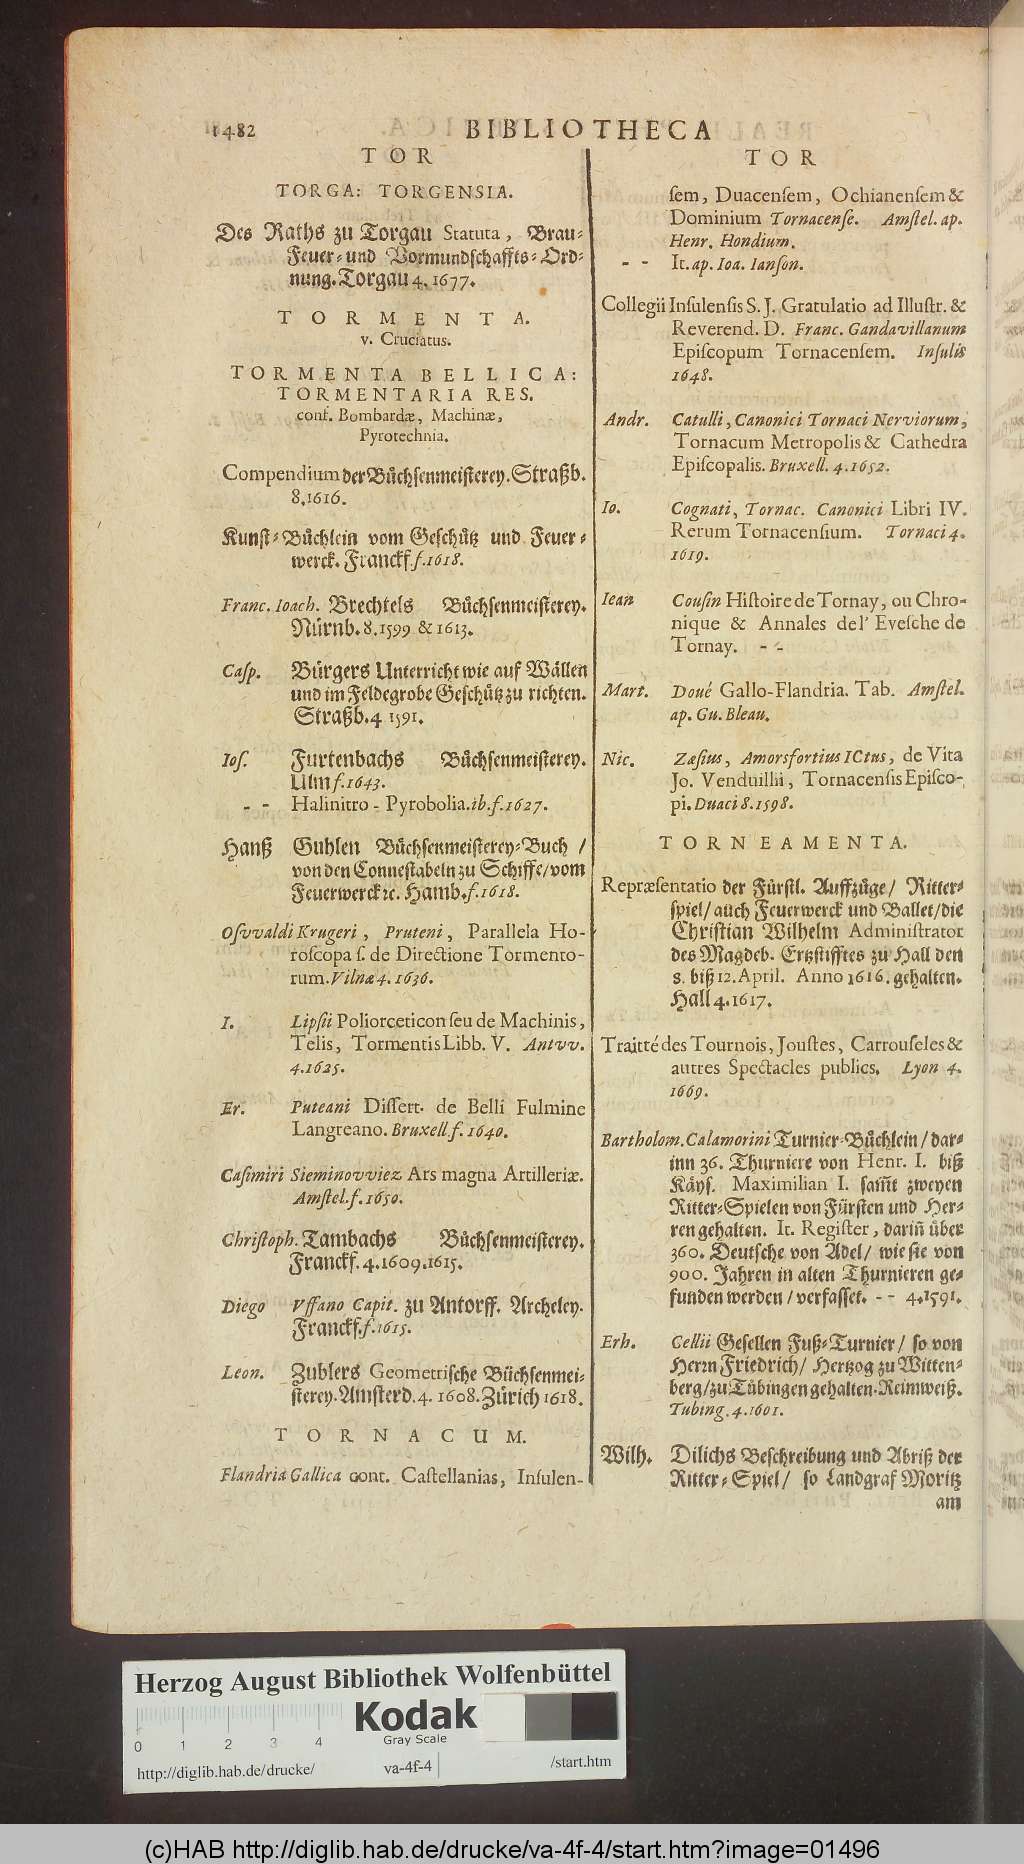 1482
BIBLIOTHECA
TOR
TORGA: TORGENSIA.
Des Raths zu Torgau Statuta, Brau-
Feuer- und Vormundschaffts-Ord-
nung. Torgau 4. 1677.
TORMENTA.
v. Cruciatus.
TORMENTA BELLICA:
TORMENTARIA RES.
conf. Bombardæ, Machinæ,
Pyrotechnia.
Compendium der Büchsenmeisterey. Straßb.
8. 1616.
Kunst-Büchlein vom Geschütz und Feuer-
werck. Franckf. f. 1618.
Franc. Ioach. Brechtels Büchsenmeisterey.
Nürnb. 8. 1599 & 1613.
Casp. Bürgers Unterricht wie auf Wällen
und im Felde grobe Geschütz zu richten.
Straßb. 4 1591.
Ios. Furtenbachs Büchsenmeisterey.
Ulm f. 1643.
- - Halinitro-Pyrobolia. ib. f. 1627.
Hanß Guhlen Büchsenmeisterey-Buch /
von den Connestabeln zu Schiffe / vom
Feuerwerck ꝛc. Hamb. f. 1618.
Osvvaldi Krugeri, Pruteni, Parallela Ho-
roscopa s. de Directione Tormento-
rum. Vilnæ 4. 1636.
I. Lipsii Poliorceticon seu de Machinis,
Telis, Tormentis Libb. V. Antvv.
4. 1625.
Er. Puteani Dissert. de Belli Fulmine
Langreano. Bruxell f. 1640.
Casimiri Sieminovviez Ars magna Artilleriæ.
Amstel. f. 1650.
Christoph. Tambachs Büchsenmeisterey.
Franckf. 4. 1609. 1615.
Diego Vffano Capit. zu Antorff. Archeley.
Franckf. f. 1615.
Leon. Zublers Geometrische Büchsenmei-
sterey. Amsterd. 4. 1608. Zürich 1618.
TORNACUM.
Flandria Gallica cont. Castellanias, Insulen-
TOR
sem, Duacensem, Ochianensem &
Dominium Tornacense. Amstel. ap.
Henr. Hondium.
- - It. ap. Ioa. Ianson.
Collegii Insulensis S. J. Gratulatio ad Illustr. &
Reverend. D. Franc. Gandavillanum
Episcopum Tornacensem. Insulis
1648.
Andr. Catulli, Canonici Tornaci Nerviorum,
Tornacum Metropolis & Cathedra
Episcopalis. Bruxell. 4. 1652.
Io. Cognati, Tornac. Canonici Libri IV.
Rerum Tornacensium. Tornaci 4.
1619.
Iean Cousin Histoire de Tornay, ou Chro-
nique & Annales de l' Evesche de
Tornay. - -
Mart. Doué Gallo-Flandria. Tab. Amstel.
ap. Gu. Bleau.
Nic. Zæsius, Amorsfortius ICtus, de Vita
Jo. Venduillii, Tornacensis Episco-
pi. Duaci 8. 1598.
TORNEAMENTA.
Repræsentatio der Fürstl. Auffzüge / Ritter-
spiel / auch Feuerwerck und Ballet / die
Christian Wilhelm Administrator
des Magdeb. Ertzstifftes zu Hall den
8. biß 12. April. Anno 1616. gehalten.
Hall 4. 1617.
Traitté des Tournois, Joustes, Carrouseles &
autres Spectacles publics. Lyon 4.
1669.
Bartholom. Calamorini Turnier-Büchlein / dar-
inn 36. Thurniere von Henr. I. biß
Käys. Maximilian I. sam̃t zweyen
Ritter-Spielen von Fürsten und Her-
ren gehalten. It. Register, darin̄ über
360. Deutsche von Adel / wie sie von
900. Jahren in alten Thurnieren ge-
funden werden / verfasset. - - 4. 1591.
Erh. Cellii Gesellen Fuß-Turnier / so von
Herrn Friedrich / Hertzog zu Witten-
berg / zu Tübingen gehalten. Reimweiß.
Tubing. 4. 1601.
Wilh. Dilichs Beschreibung und Abriß der
Ritter-Spiel / so Landgraf Moritz
am
Herzog August Bibliothek Wolfenbüttel
Kodak
Gray Scale
0 1 2 3 4
http://diglib.hab.de/drucke/ va-4f-4 /start.htm
(c)HAB http://diglib.hab.de/drucke/va-4f-4/start.htm?image=01496